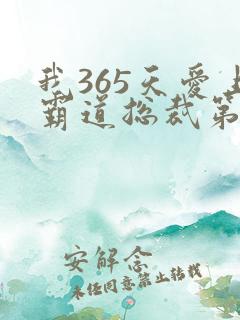 我365天爱上
霸道总裁第
安解念
未经同意禁止转载